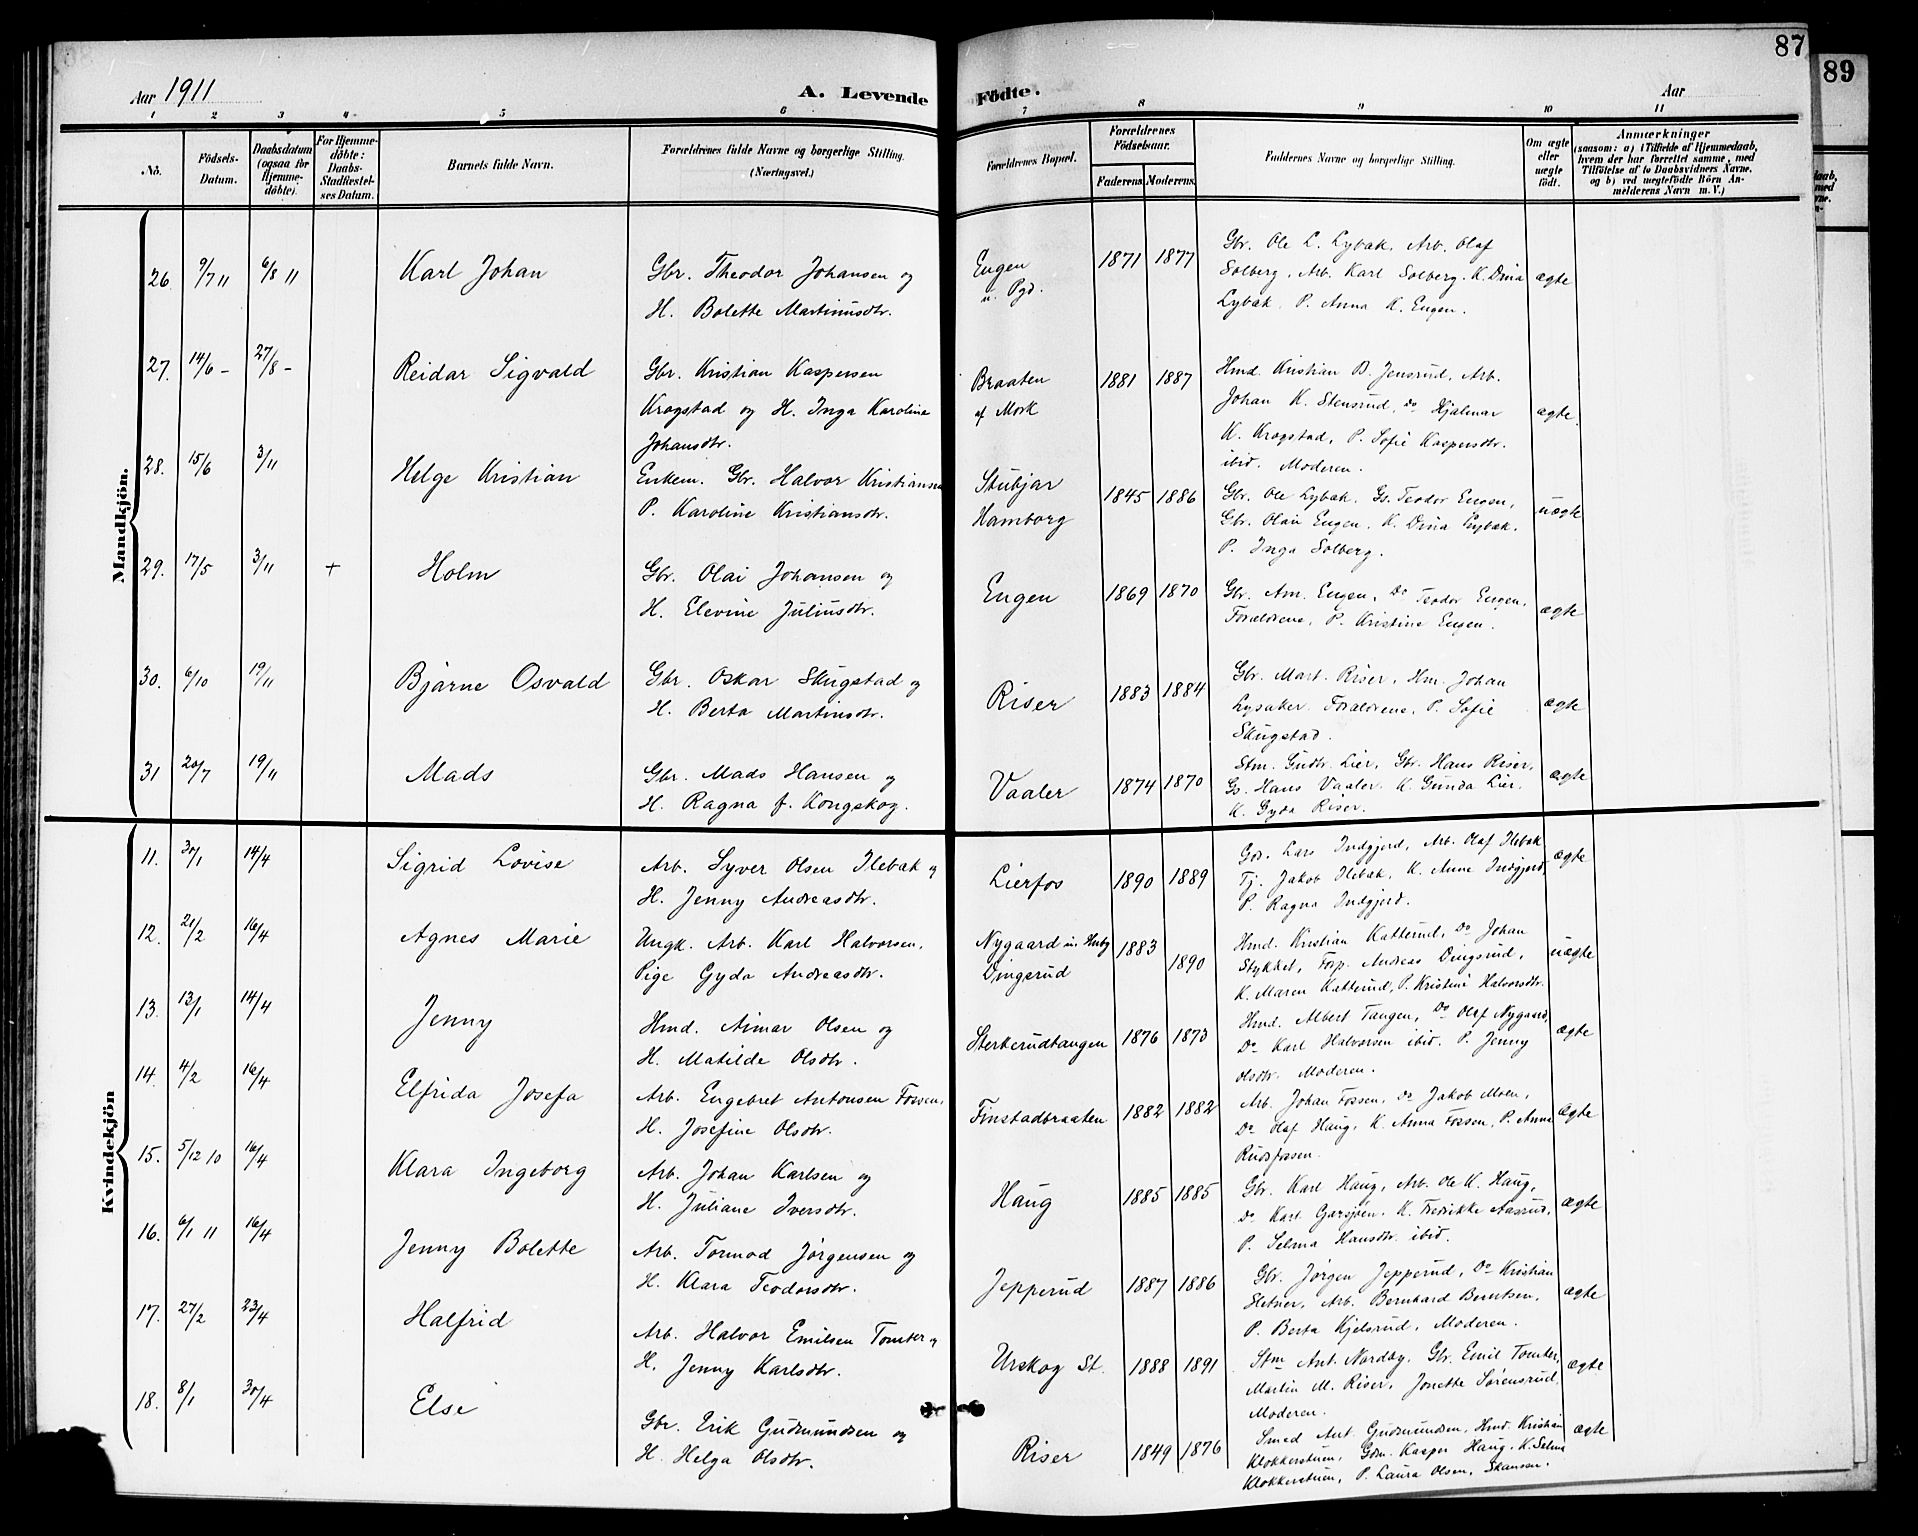 87
89
Aar 1911
A. Levende Födte.
Aar
1 2 3 4 5 6 7 8 9 10 11
No.
Födsels-
Datum.
Daabsdatum
(ogsaa for
Hjemme-
döbte).
For Hjemme-
döbte:
Daabs-
Stadfæstel-
ses Datum.
Barnets fulde Navn.
Forældrenes fulde Navne og borgerlige Stilling.
(Næringsvei.)
Forældrenes Bopæl.
Forældrenes
Födselsaar.
Faderens. Moderens.
Faddernes Navne og borgerlige Stilling.
Om ægte
eller
uægte
födt.
Anmærkninger
(saasom: a) i Tilfælde af Hjemmedaab,
hvem der har forrettet samme, med
Tilföielse af to Daabsvidners Navne,
og b) ved uægtefödte Börn An-
melderens Navn m. V.)
Mandkjön.
26. 9/7 11 6/8 11 Karl Johan Gbr. Theodor Johansen og
H. Bolette Martinusdtr.
Eugen
u. Pgd.
1871 1877
Gbr. Ole L. Lybak, Arb. Olaf
Solberg, Arb. Karl Solberg. K. Dina
Lybak, P. Anna K. Eugen.
ægte
27. 14/6 - 27/8 - Reidar Sigvald Gbr. Kristian Kaspersen
Krogstad og H. Inga Karoline
Johansdtr.
Braaten
af Mork
1881 1887
Hmd. Kristian B. Jensrud, Arb.
Johan K. Stensrud, Do Hjalmar
K. Krogstad, P. Sofie Kaspersdtr.
ibid. Moderen.
ægte.
28. 15/6 3/11 Helge Kristian Enkem. Gbr. Halvor Kristiansen
P. Karoline Kristiansdtr.
Stubjar
Hamborg
1845 1886
Gbr. Ole Lybak, Gs. Teodor Eugen,
Gbr. Olai Eugen, K. Dina Lybak,
P. Inga Solberg.
uægte
29. 17/5 3/11 + Holm Gbr. Olai Johansen og
H. Elevine Juliusdtr.
Eugen
1869 1870
Gbr. Am. Eugen, Do Teodor Eugen,
Forældrene, P. Kristine Eugen.
ægte
30. 6/10 19/11 Bjarne Osvald Gbr. Oskar Skugstad og
H. Berta Martinsdtr.
Riser
1883 1884
Gbr. Mart. Riser, Hm. Johan
Lysaker. Forældrene, P. Sofie
Skugstad.
ægte
31 20/7 19/11 Mads Gbr. Mads Hansen og
H. Ragna f. Kongskog.
Vaaler
1874 1870
Stm. Gudbr. Lier, Gbr. Hans Riser,
Gs. Hans Vaaler. K. Gunda Lier,
K. Gyda Riser.
ægte
Kvindekjön
11. 30/1 14/4 Sigrid Lovise Arb. Syver Olsen Ilebak og
H. Jenny Andreasdtr.
Lierfos
1890 1889
Lars Indgjerd, Arb. Olaf Ilebak
Tj. Jakob Ilebak, K. Anne Indgjerd,
P. Ragna Indgjerd.
ægte
12. 21/2 16/4 Agnes Marie Ungk. Arb. Karl Halvorsen,
Pige Gyda Andreasdtr.
Nygaard
Dingsrud
1883 1890
Hmd. Kristian Katterud, Do Johan
Stykket, Forp. Andreas Dingsrud,
K. Maren Katterud, P. Kristine Halvorsdtr.
uægte
13. 13/1 14/4 Jenny Hmd. Aimar Olsen og
H. Matilde Olsdtr.
Sterkerudtangen
1876 1873
Hmd. Albert Tangen, Do Olaf Nygaard,
Do Karl Halvorsen ibid. P. Jenny
Olsdtr. Moderen.
ægte
14. 4/2 16/4 Elfrida Josefa Arb. Engebret Antonsen Fossen,
H. Josefine Olsdtr.
Finstadbraaten
1882 1882
Arb. Johan Fossen, Do Jakob Moen,
Do Olaf Haug, K. Anna Fossen, P. Anna
Rudsfossen.
ægte
15. 5/12 10 16/4 Klara Ingeborg Arb. Johan Karlsen og
H. Juliane Iversdtr.
Haug
1885 1885
Gbr. Karl Haug, Arb. Ole K. Haug,
Do Karl Garsjøen, K. Fredrikke Aasrud,
P. Selma Hansdtr. ibid.
ægte
16. 6/1 11 16/4 Jenny Bolette Arb. Tormod Jørgensen og
H. Klara Teodorsdtr.
Jepperud
1887 1886
Gbr. Jørgen Jepperud, Do Kristian
Sletner, Arb. Bernhard Berntsen,
P. Berta Kjelsrud, Moderen.
ægte
17. 27/2 23/4 Halfrid Arb. Halvor Emilsen Tomter og
H. Jenny Karlsdtr.
Urskog St.
1888 1891
Stm Ant. Nordby, Gbr. Emil Tomter,
Martin M. Riser, Jonette Sørensrud,
Moderen.
ægte
18. 8/1 30/4 Else Gbr. Erik Gudmundsen og
H. Helga Olsdtr.
Riser
1849 1876
Smed Ant. Gudmundsen, Hmd. Kristian
Klokkerstuen, Gdm. Kasper Haug. K. Selma
Klokkerstuen, P. Laura Olsen, Skansen.
ægte